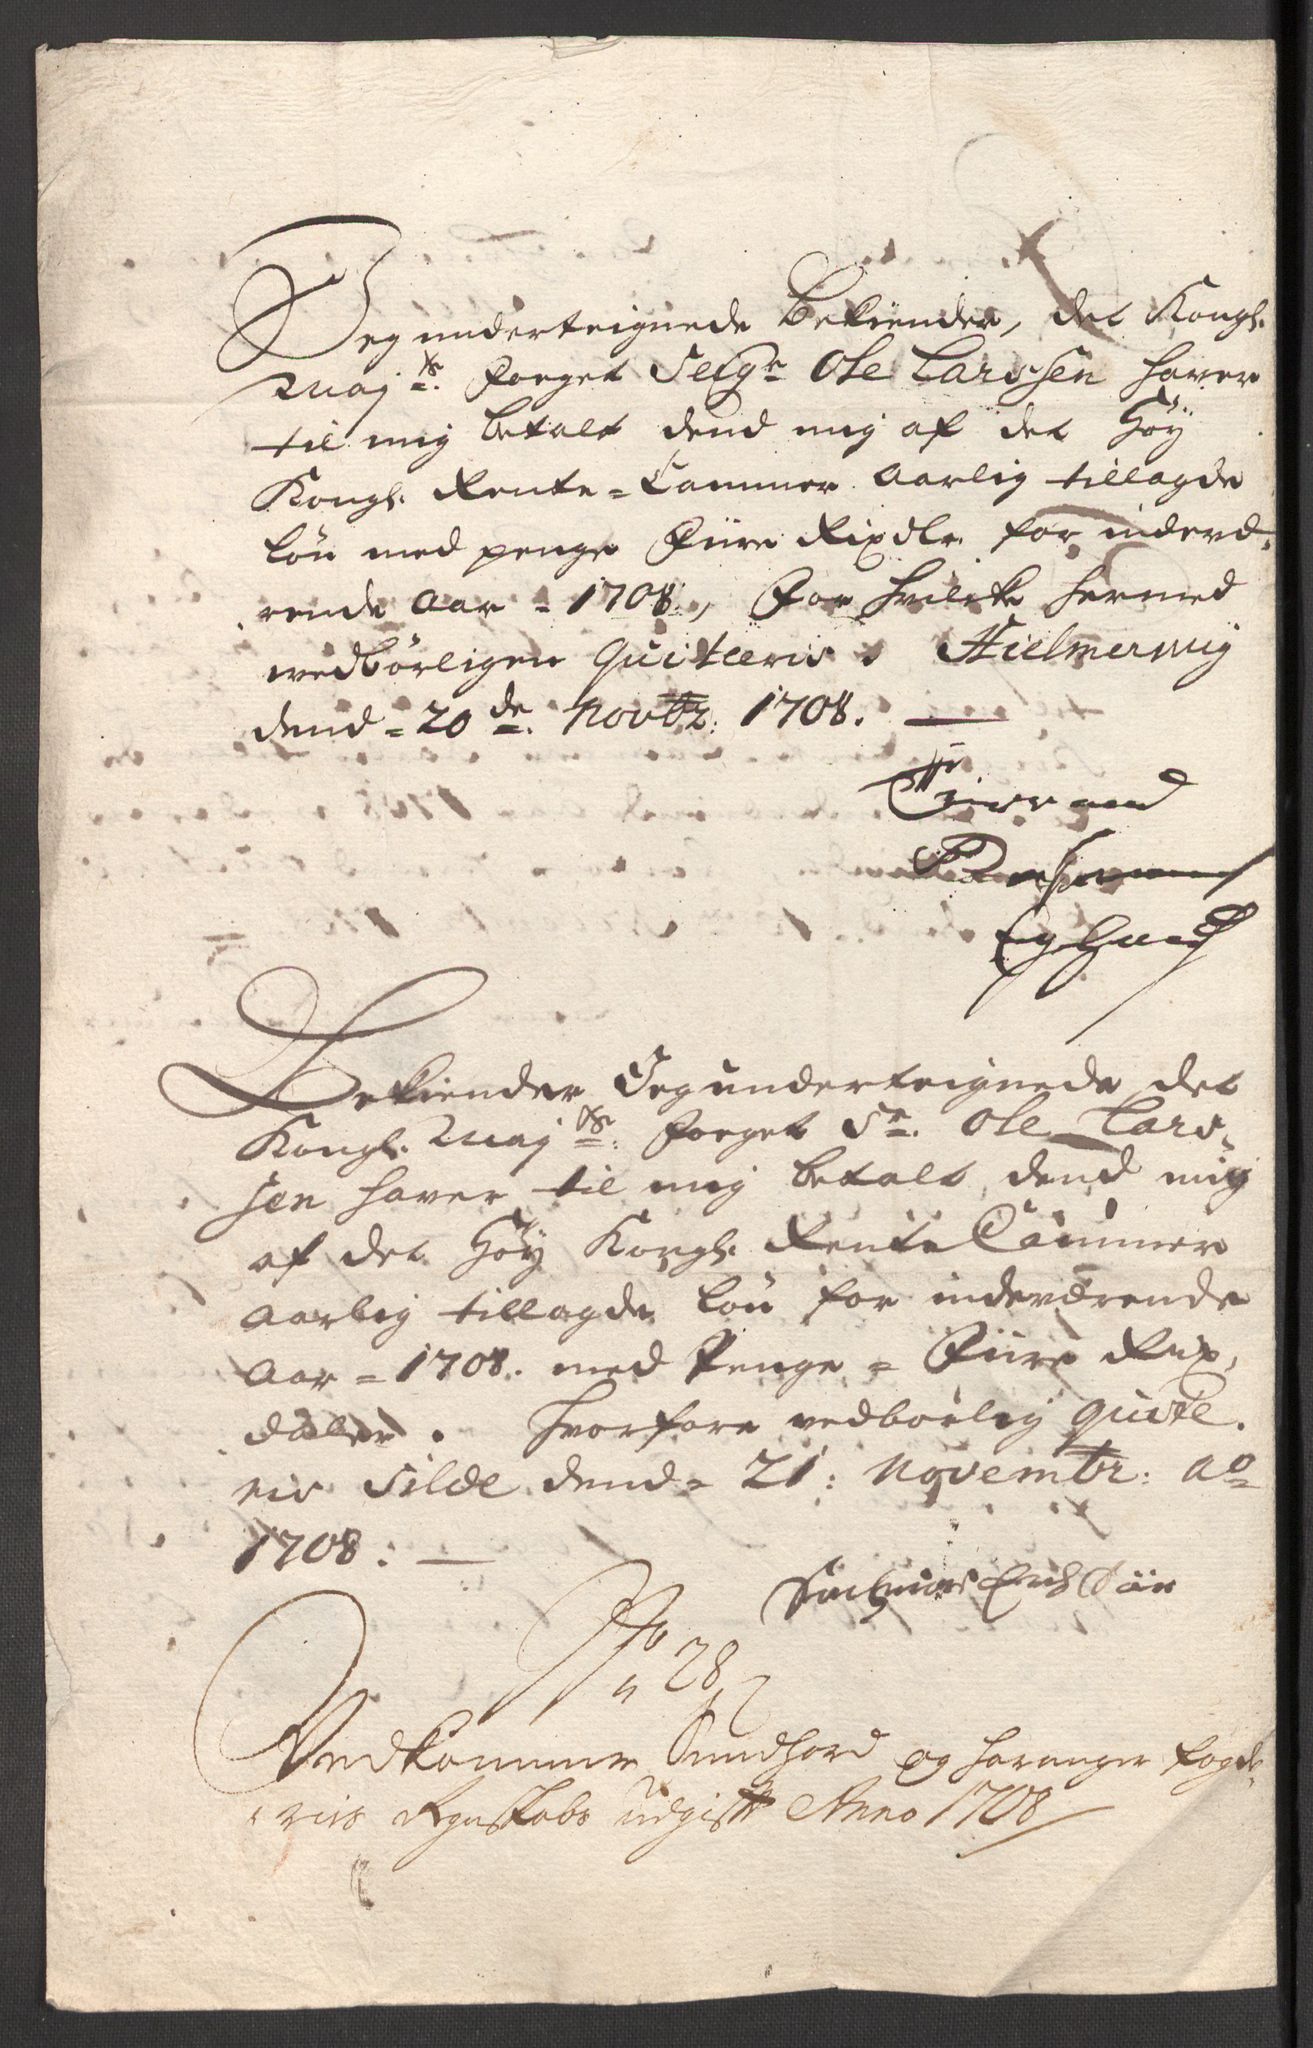 Jeg underteignede Bekiender, det Kongl:
Mayts: Foeget Seigr Ole Larssen haver
til mig betalt dend mig af det Höy
Kongl: Rente-Cammer aarlig tillagde
Lön med penge Fiire Rixdlr for inderd,
rende Aar = 1708, For hvilcke hermed
vedbörligen Quitteris. Hielmervig
dend = 20de Novbr: 1708.
Bekiender Jeg underteignede det
Kongl: Mayts: Foeget Sr. Ole Lars,
sen haver til mig betalt dend mig
af det Höy Kongl: Rente Cammer
Aarlig tillagde Lön for indeværende
Aar = 1708. med Penge = Fiire Rix,
daler. Hvorfore vedbörlig quite,
ris Silde dend = 21: Novembr: Ao
1708:
No
28
Vedkommer Sundhord og Haranger fogde,
riis Regnskabs udgift Anno 1708